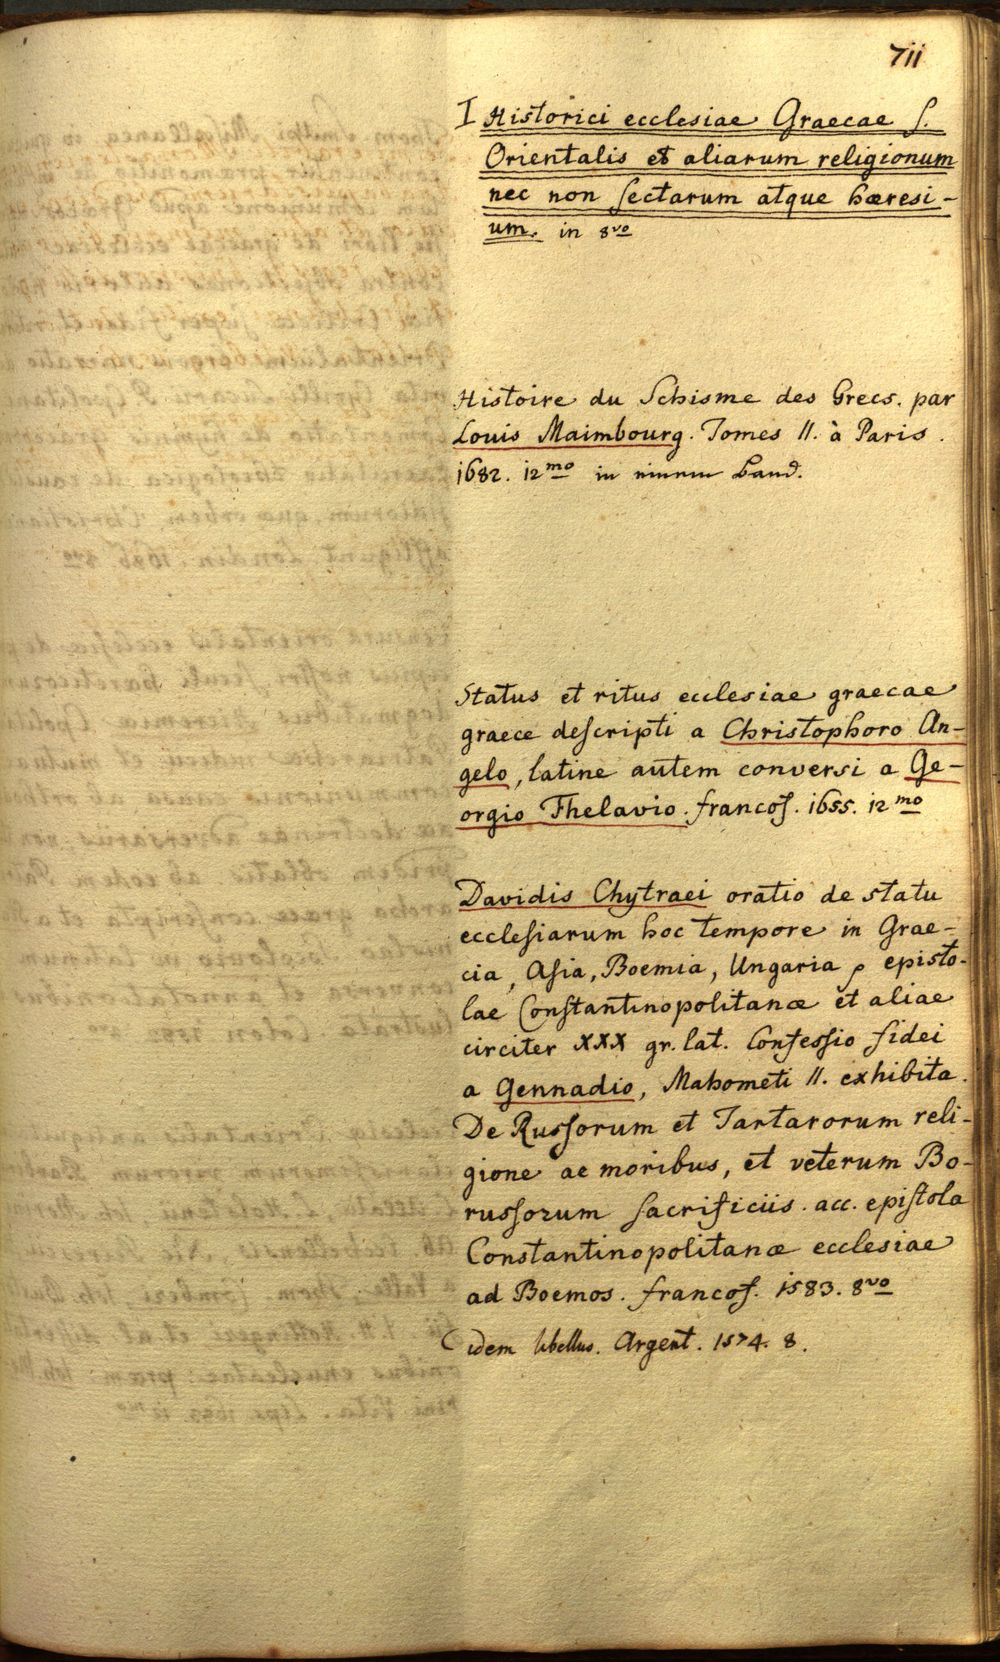 711
I Historici ecclesiae Graecae s.
Orientalis et aliarum religionum
nec non sectarum atque hæresi-
um. in 8vo
Histoire du Schisme des Grecs. par
Louis Maimbourg. Tomes II. à Paris.
1682. 12mo in einem Band.
Status et ritus ecclesiae graecae
graece descripti a Christophoro An-
gelo, latine autem conversi a Ge-
orgio Fhelavio. francof. 1655. 12mo
Davidis Chytraei oratio de statu
ecclesiarum hoc tempore in Grae-
cia, Asia, Boemia, Ungaria, episto-
lae Constantinopolitanæ et aliae
circiter XXX gr. lat. Confessio fidei
a Gennadio, Mahometi II. exhibita.
De Russorum et Tartarorum reli-
gione ac moribus, et veterum Bo-
russorum sacrificiis. acc. epistola
Constantinopolitanæ ecclesiae
ad Boemos. francof. 1583. 8vo
idem libellus. Argent. 1574. 8.